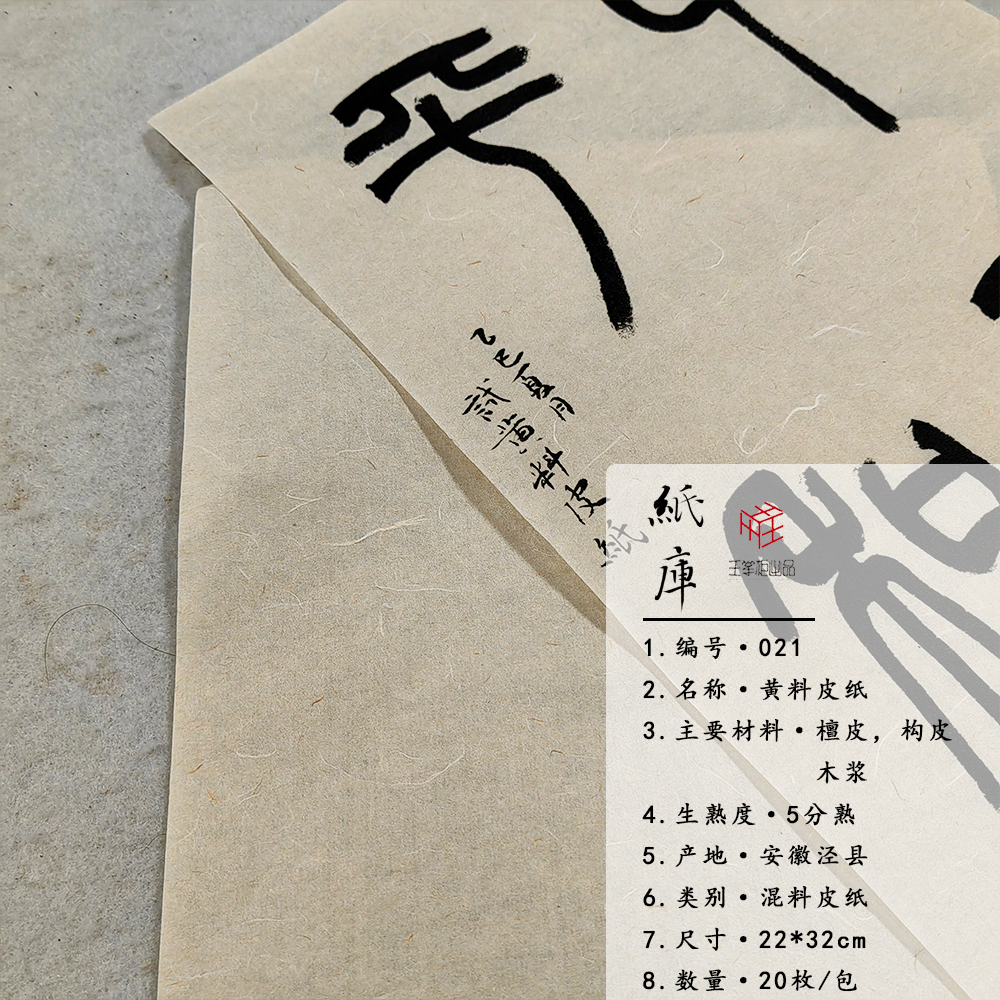 乙巳夏月
試黄料皮
紙
紙庫
1.编号·021
2.名称·黄料皮纸
3.主要材料·檀皮，构皮
木浆
4.生熟度·5分熟
5.产地·安徽泾县
6.类别·混料皮纸
7.尺寸·22*32cm
8.数量·20枚/包